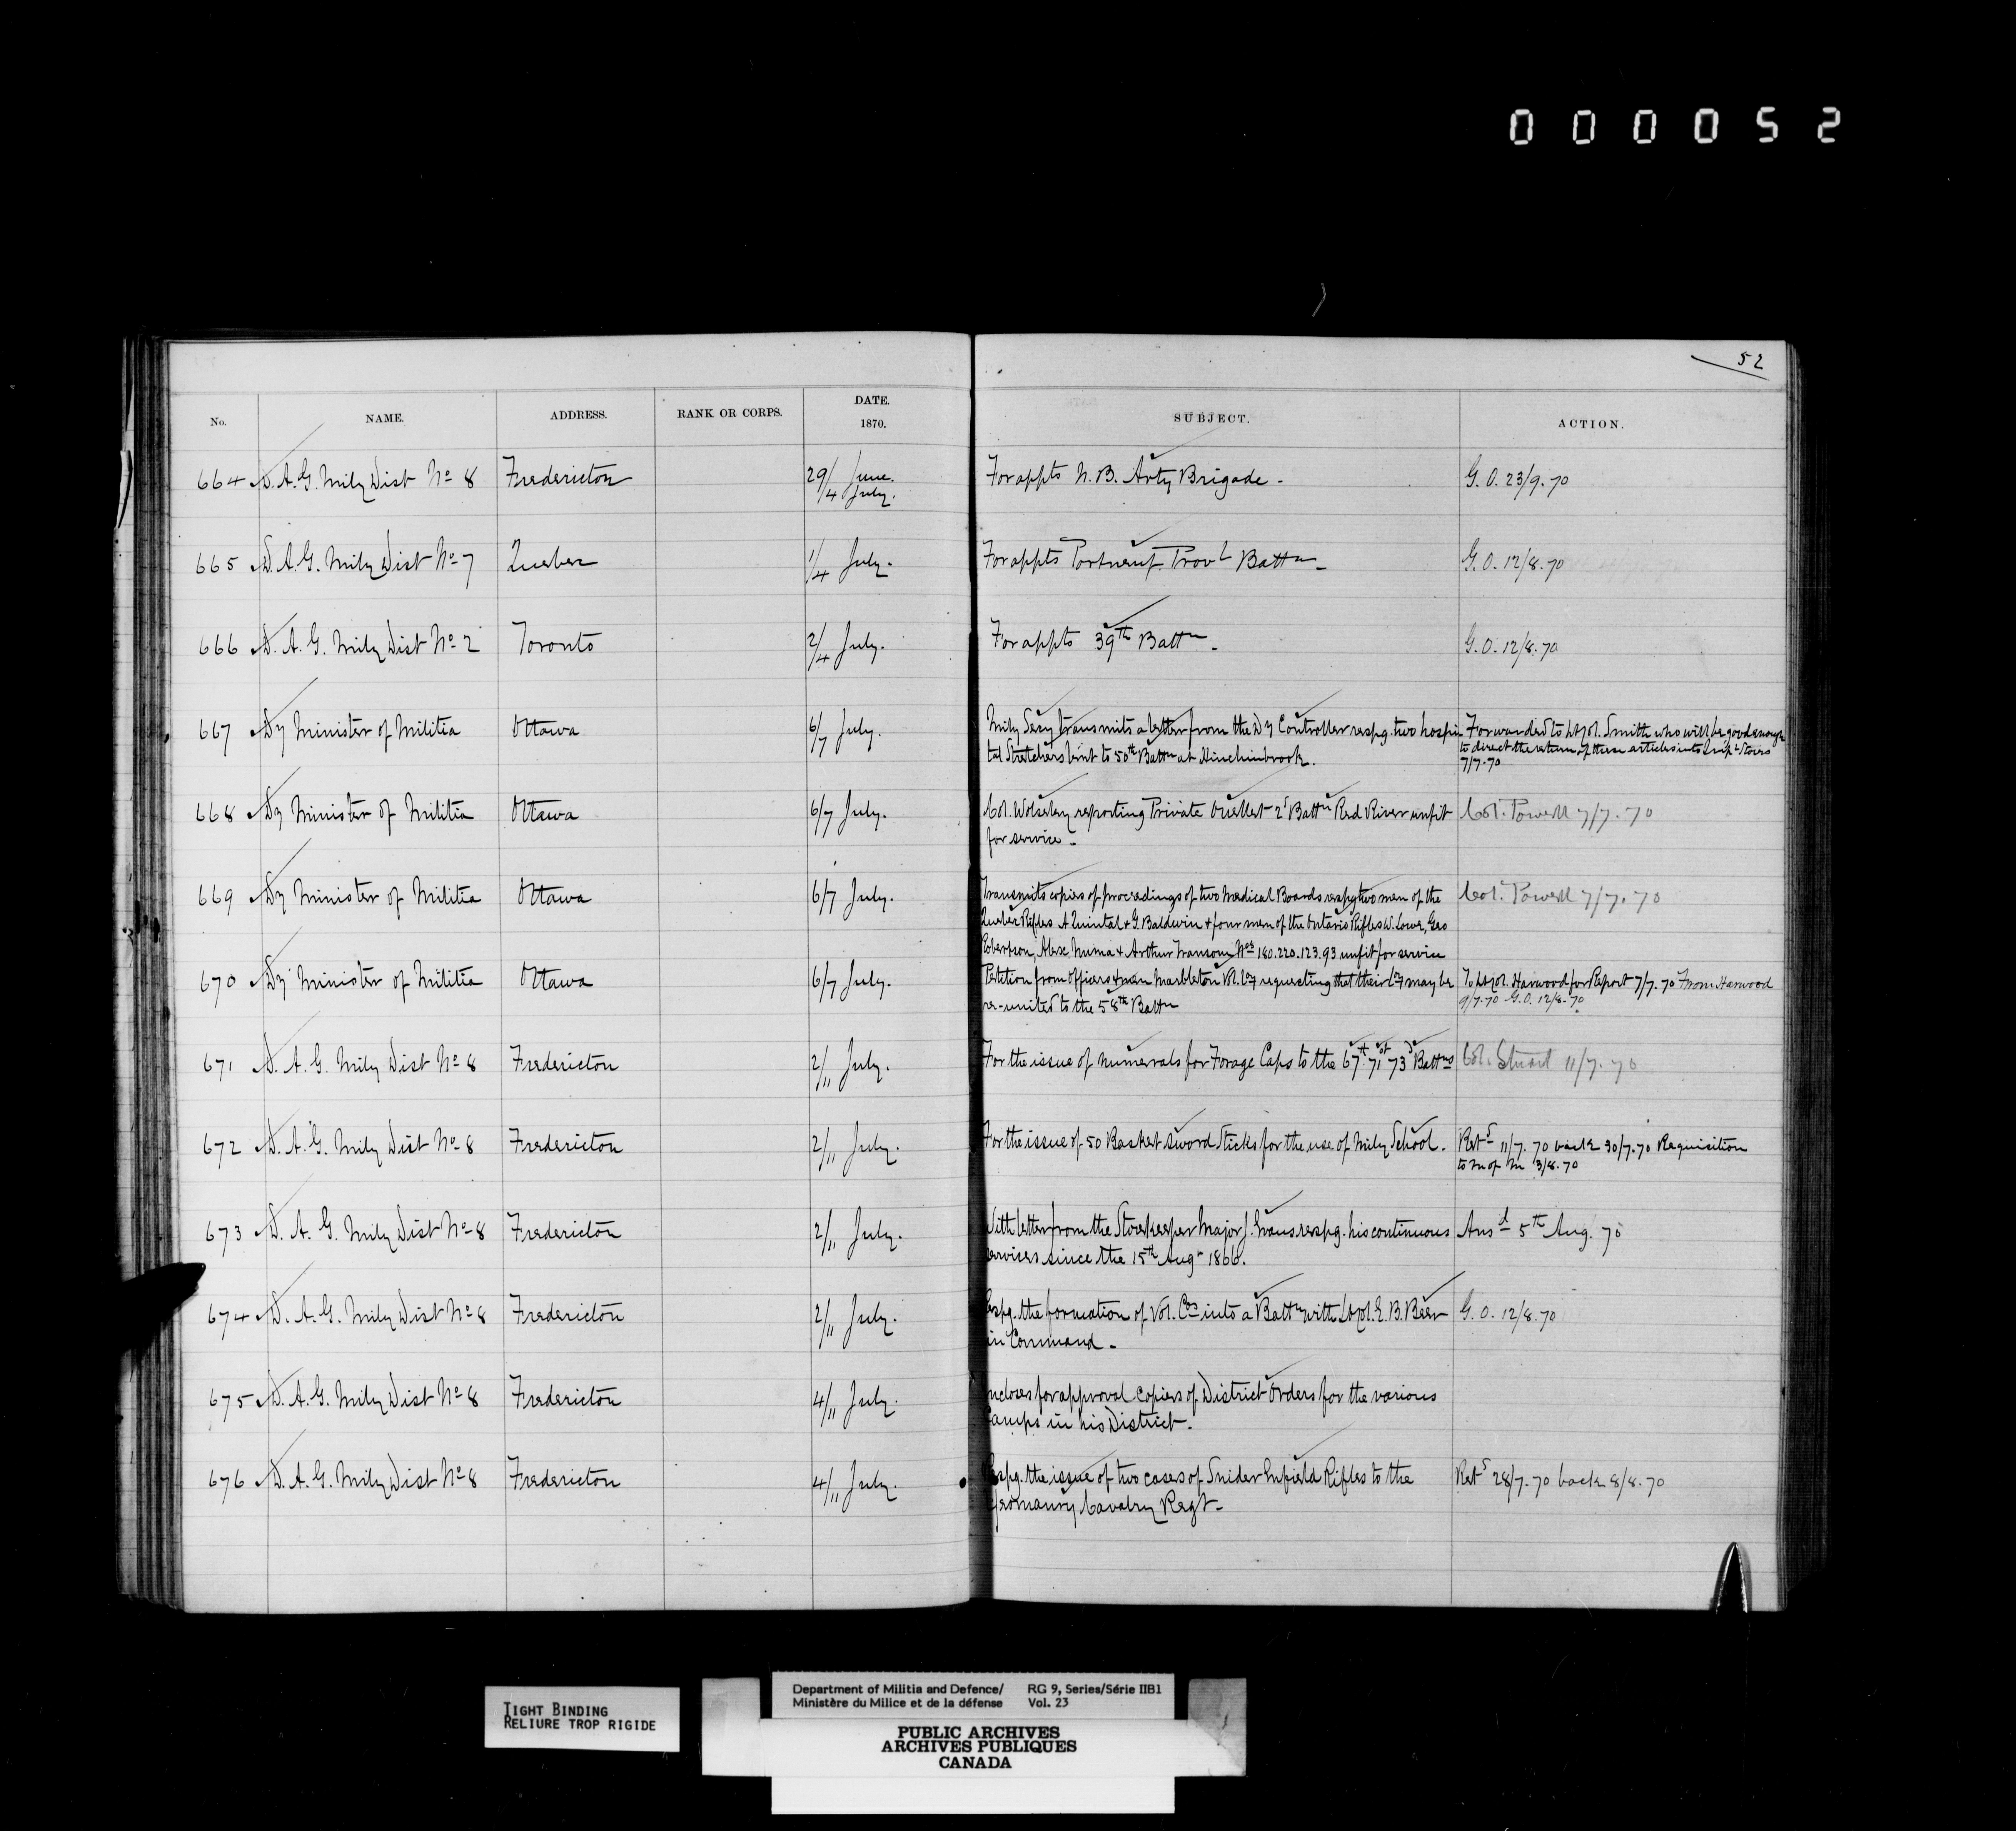 000052
52
No. NAME. ADDRESS. RANK OR CORPS. DATE. 1870. SUBJECT. ACTION.
664 D. A. G. Mily Dist No 8 Fredericton 29/4 June. July. For appts N. B. Arty Brigade - G. O. 23/9. 70
665 D. A. G. Mily Dist No 7 Quebec 1/4 July. For appts Portneuf Provl Battn - G. O. 12/8. 70
666 D. A. G. Mily Dist No 2 Toronto 2/4 July. For appts 39th Battn - G. O. 12/8. 70
667 Dy Minister of Militia Ottawa 6/7 July. Mily Secy transmits a letter from the Dy Controller respg. two hospi- Forwarded to Lt Col. Smith who will be good enough
tal Stretchers lent to 50th Battn at Hinchinbrook. to direct the return of these articles into Stores
7/7. 70
668 Dy Minister of Militia Ottawa 6/7 July. Col. Wolseley reporting Private Ouellet 2d Battn Red River unfit Col. Powell 7/7. 70
for service -
669 Dy Minister of Militia Ottawa 6/7 July. Transmits copies of proceedings of two Medical Boards respg two men of the Col. Powell 7/7. 70
Quebec Rifles A Quintal & G. Baldwin & four men of the Ontario Rifles W. Lowe, Geo
Robertson, Alex. Numa & Arthur Transom Nos 180. 220. 123. 93 unfit for service
670 Dy Minister of Militia Ottawa 6/7 July. Petition from Officers & men Marbleton Vol. Coy requesting that their Coy may be To Lt Col. Harwood for Report 7/7. 70 From Harwood
re-united to the 58th Battn 9/7. 70 G. O. 12/8. 70
671 D. A. G. Mily Dist No 8 Fredericton 2/11 July. For the issue of numerals for Forage Caps to the 67th 71st 73d Battns Col. Stuart 11/7. 70
672 D. A. G. Mily Dist No 8 Fredericton 2/11 July. For the issue of 50 Basket Sword Sticks for the use of Mily School. Retd 11/7. 70 back 30/7. 70 Requisition
to M of M 3/8. 70
673 D. A. G. Mily Dist No 8 Fredericton 2/11 July. With letter from the Storekeeper Major J. Evans respg. his continuous Ansd 5th Aug. 70
services since the 15th Augt 1866.
674 D. A. G. Mily Dist No 8 Fredericton 2/11 July. Respg. the formation of Vol. Cos into a Battn with Lt Col. E. B. Beer G. O. 12/8. 70
in Command -
675 D. A. G. Mily Dist No 8 Fredericton 4/11 July. Incloses for approval copies of District Orders for the various
Camps in his District.
676 D. A. G. Mily Dist No 8 Fredericton 4/11 July. Respg. the issue of two cases of Snider Enfield Rifles to the Retd 28/7. 70 back 8/8. 70
Yeomanry Cavalry Regt -
TIGHT BINDING
RELIURE TROP RIGIDE
Department of Militia and Defence/ RG 9, Series/Série IIB1
Ministère du Milice et de la défense Vol. 23
PUBLIC ARCHIVES
ARCHIVES PUBLIQUES
CANADA